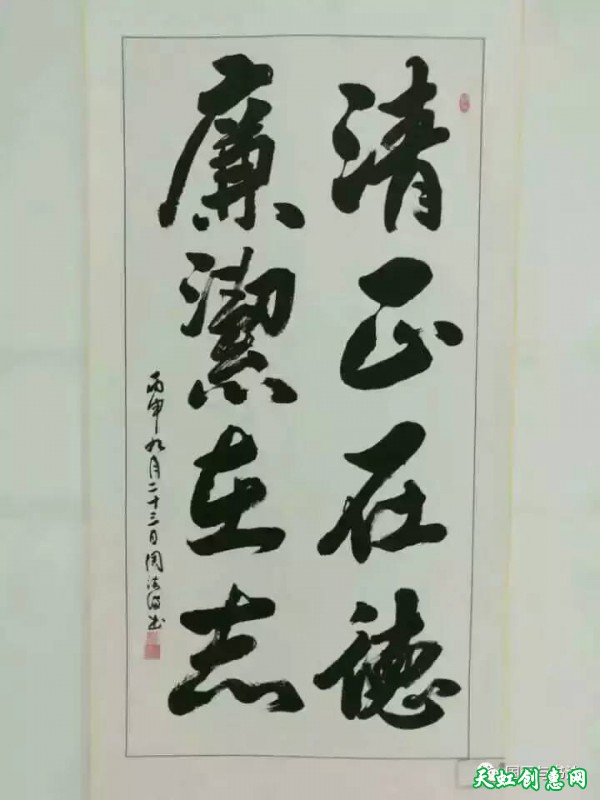 清正在德
廉潔在志
丙申九月二十三日周法海书
天虹创惠网